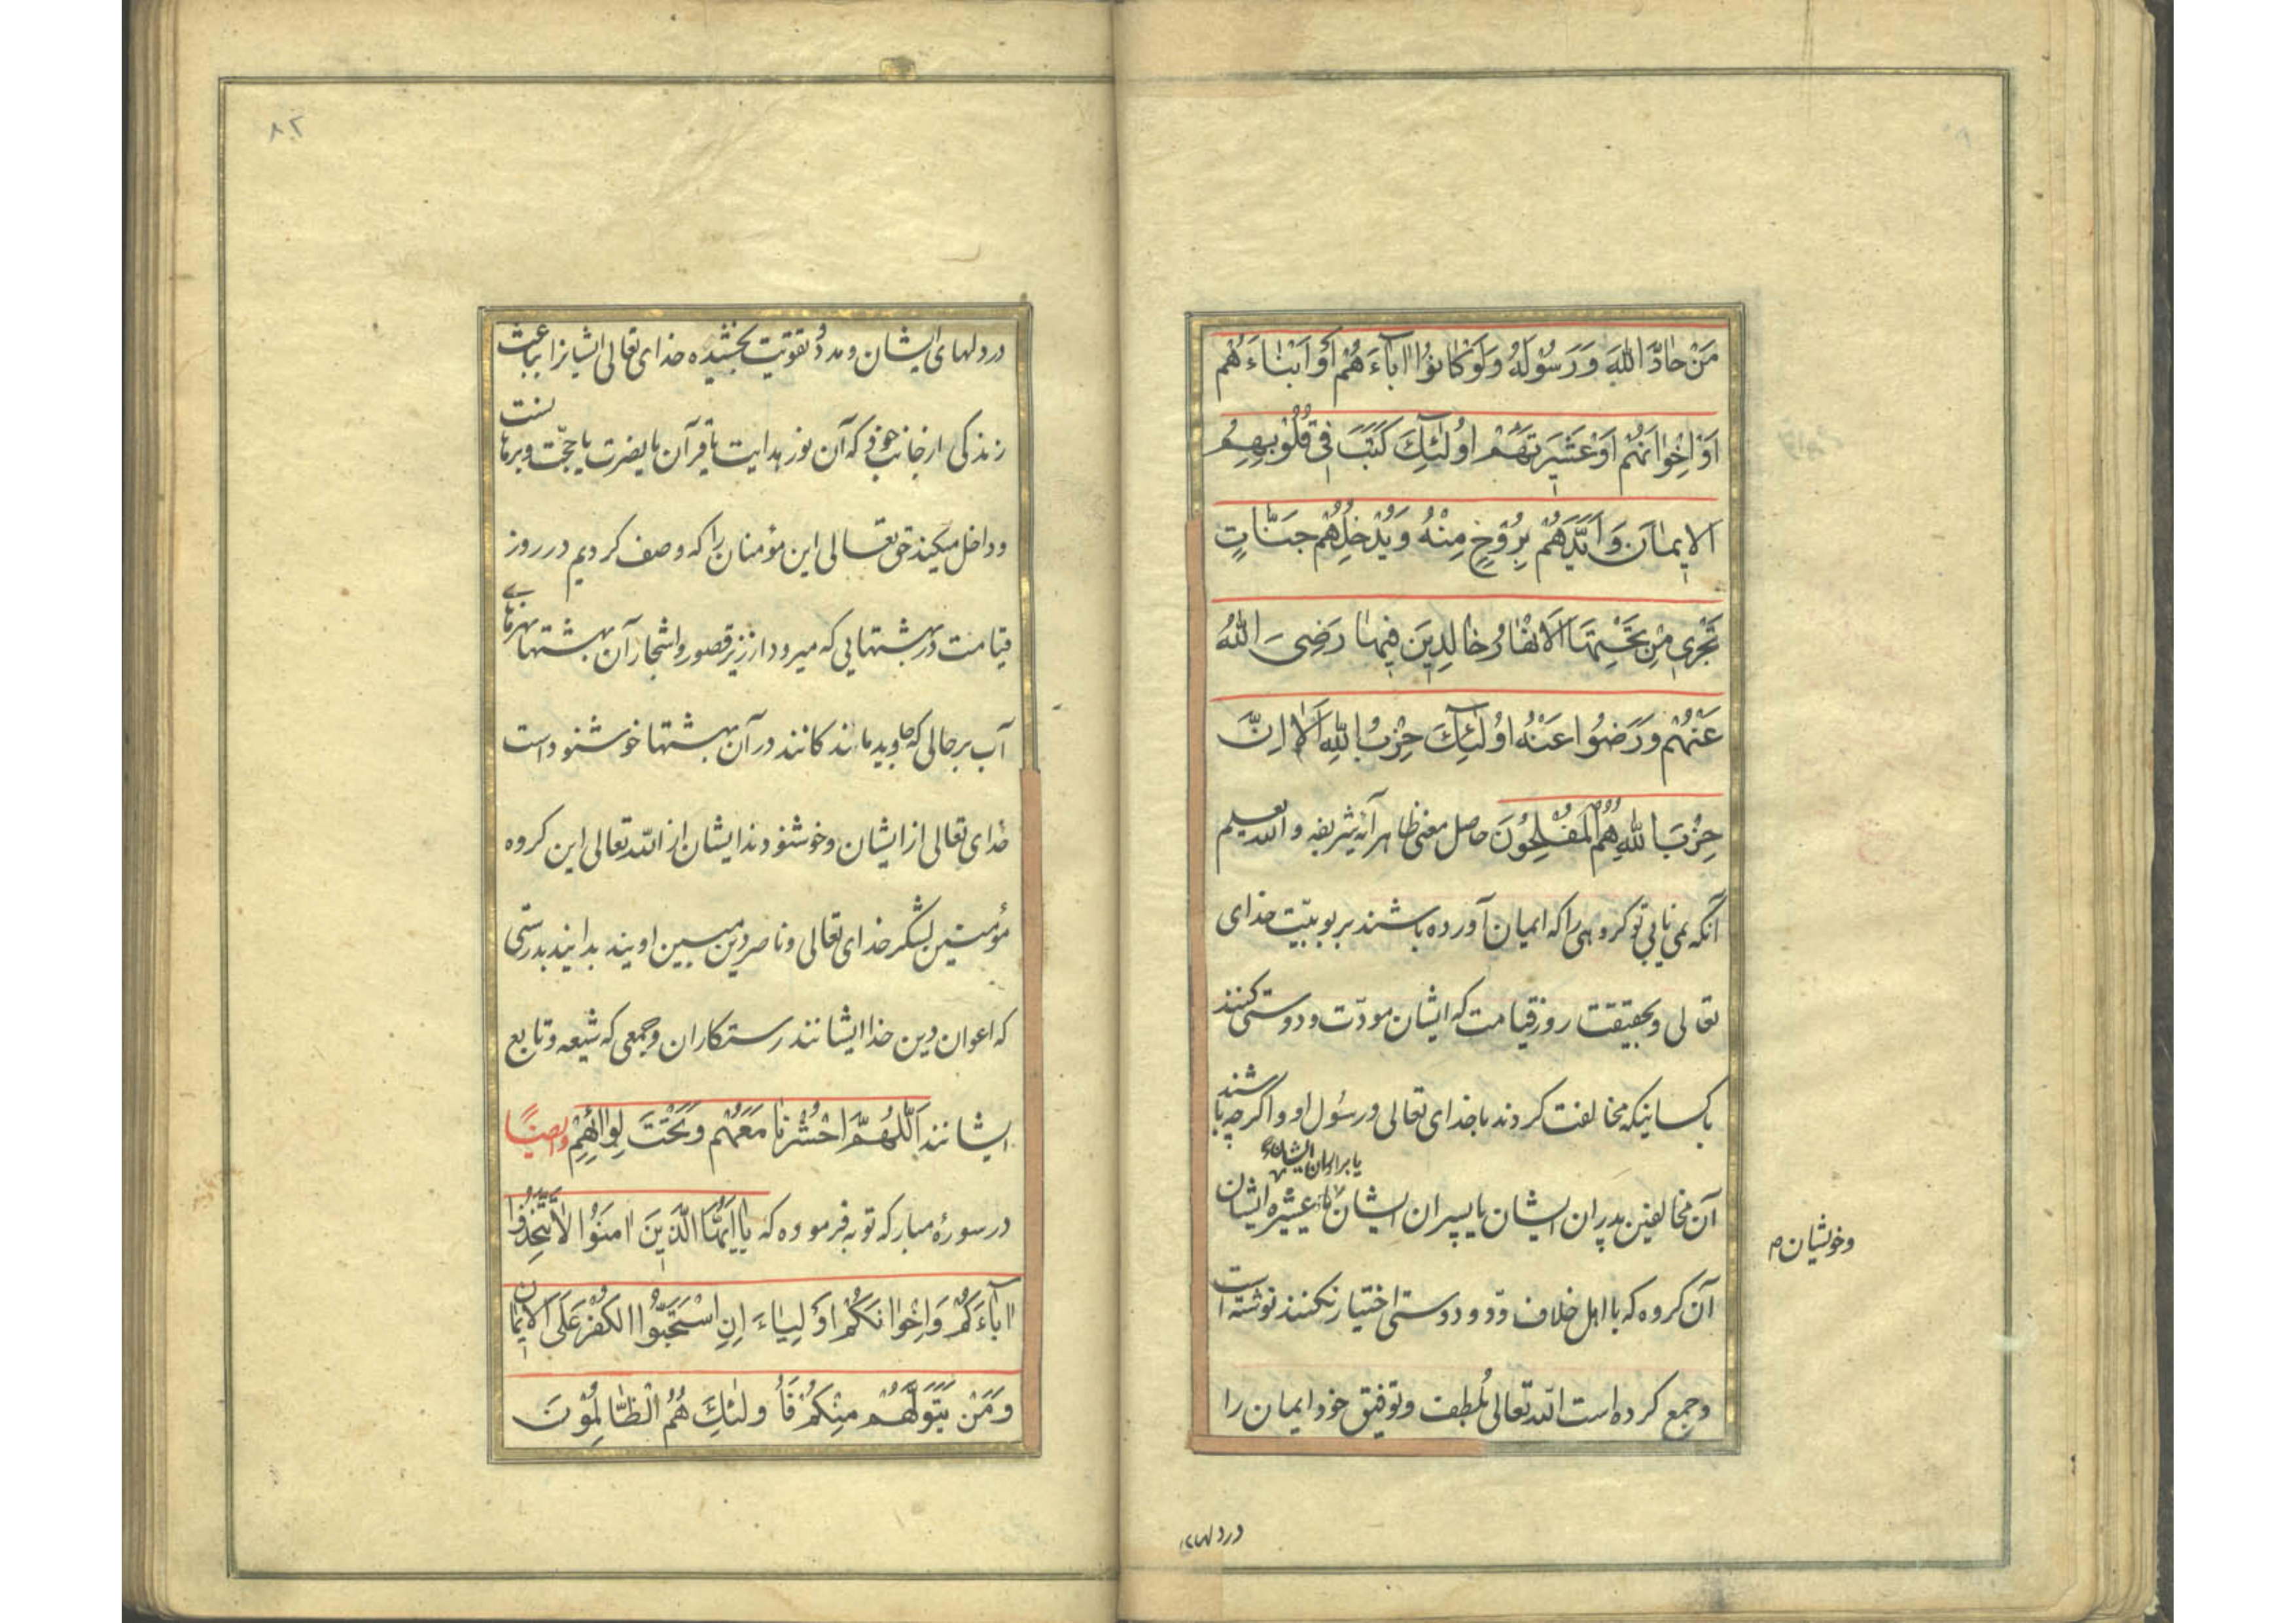 مَنْ حَادَّ اللّٰهَ وَرَسُولَهُ وَلَوْ كَانُوا اٰبَاءَهُمْ اَوْ اَبْنَاءَهُمْ
اَوْ اِخْوَانَهُمْ اَوْ عَشِيرَتَهُمْ اُولٰئِكَ كَتَبَ فِى قُلُوبِهِمُ
الْاِيمَانَ وَاَيَّدَهُمْ بِرُوحٍ مِنْهُ وَيُدْخِلُهُمْ جَنَّاتٍ
تَجْرِى مِنْ تَحْتِهَا الْاَنْهَارُ خَالِدِينَ فِيهَا رَضِىَ اللّٰهُ
عَنْهُمْ وَرَضُوا عَنْهُ اُولٰئِكَ حِزْبُ اللّٰهِ اَلَا اِنَّ
حِزْبَ اللّٰهِ هُمُ الْمُفْلِحُونَ حاصل معنی ظاهر آیهٔ شریفه و الله یعلم
آنکه نمی یابی تو کروهی را که ایمان آورده باشند بربوبیّت خدای
تعالی و بحقیقت روز قیامت که ایشان مودّت و دوستی کنند
با کسانیکه مخالفت کردند با خدای تعالی و رسُول او و اکرچه باشند
یا برادران ایشان
آن مخالفین پدران ایشان یا پسران ایشان یا عشیره ایشان
وخویشان
آن کروه که با اهل خلاف ودّ و دوستی اختیار نکنند نوشته است
و جمع کرده است الله تعالی بُلطف و توفیق خود ایمان را
در دلهای
۸۲
در دلهای ایشان و مدد و تقویت بخشیده خدای تعالی ایشانرا بباعث
زندکی از جانب خود که آن نور هدایت یا قرآن یا نصرت یا حجّت و برهانست
و داخل میکند حق تعالی این مؤمنان را که وصف کردیم در روز
قیامت در بهشتهایی که میرود از زیر قصور و اشجار آن بهشتها نهرهای
آب بر حالی که جاوید مانندکانند در آن بهشتها خوشنود است
خدای تعالی از ایشان و خوشنودند ایشان از الله تعالی این کروه
مؤمنین لشکر خدای تعالی و ناصر دین مبین اویند بدانید بدرستی
که اعوان دین خدا ایشانند رستکاران و جمعی که شیعه و تابع
ایشانند اَللّٰهُمَّ احْشُرْنَا مَعَهُمْ وَتَحْتَ لِوَائِهِمْ وایضًا
در سورهٔ مبارکه توبه فرموده که یَا اَيُّهَا الَّذِينَ اٰمَنُوا لَا تَتَّخِذُوا
اٰبَاءَكُمْ وَاِخْوَانَكُمْ اَوْلِيَاءَ اِنِ اسْتَحَبُّوا الْكُفْرَ عَلَى الْاِيمَانِ
وَمَنْ يَتَوَلَّهُمْ مِنْكُمْ فَاُولٰئِكَ هُمُ الظَّالِمُونَ